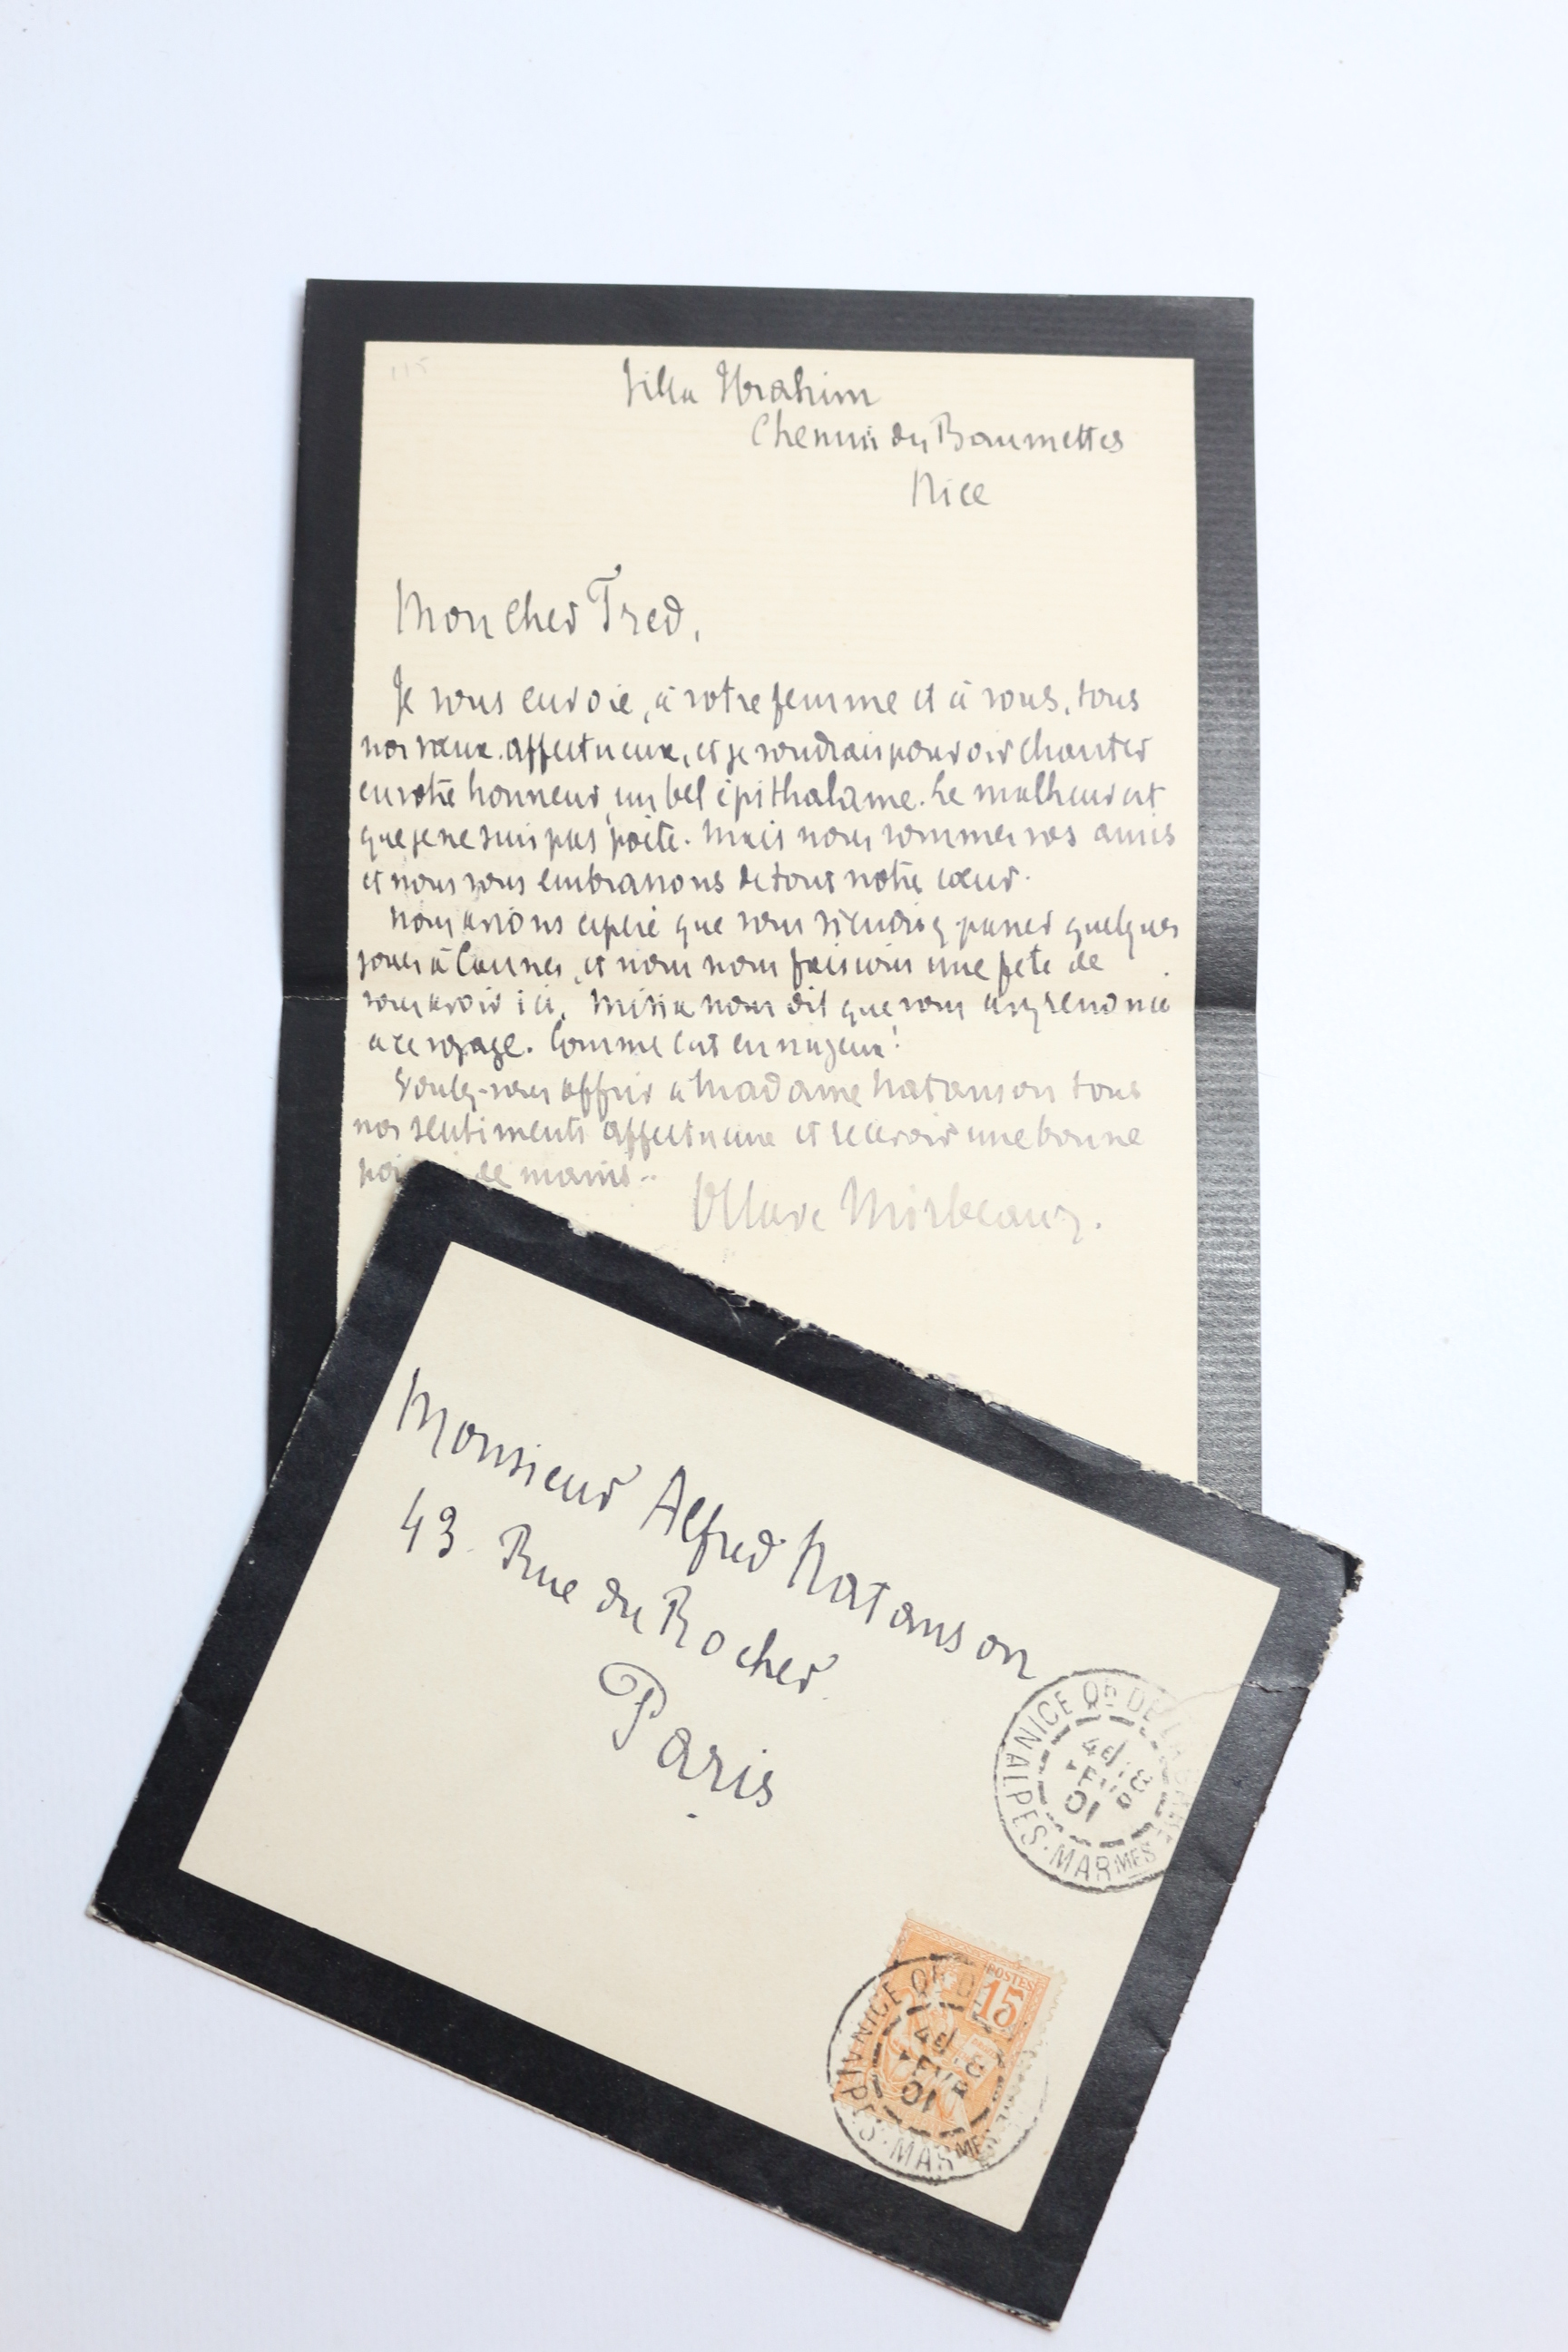 Villa Ibrahim
Chemin des Baumettes
Nice
Mon cher Fred,
Je vous envoie, à votre femme et à vous, tous
nos vœux affectueux, et je voudrais pouvoir chanter
en votre honneur, un bel épithalame. Le malheur est
que je ne suis pas poète. Mais nous sommes vos amis
et nous vous embrassons de tout notre cœur.
Nous avions espéré que vous viendriez passer quelques
jours à Cannes, et nous nous faisions une fête de
vous avoir ici. Misia nous dit que vous avez renoncé
à ce voyage. Comme c'est ennuyeux!
Voulez-vous offrir à Madame Natanson tous
nos sentiments affectueux et recevoir une bonne
de mains..
Octave Mirbeau.
Monsieur Alfred Natanson
43. Rue du Rocher.
Paris
NICE
ALPES-MARMES
01
POSTES
15
NICE
MARMES
01